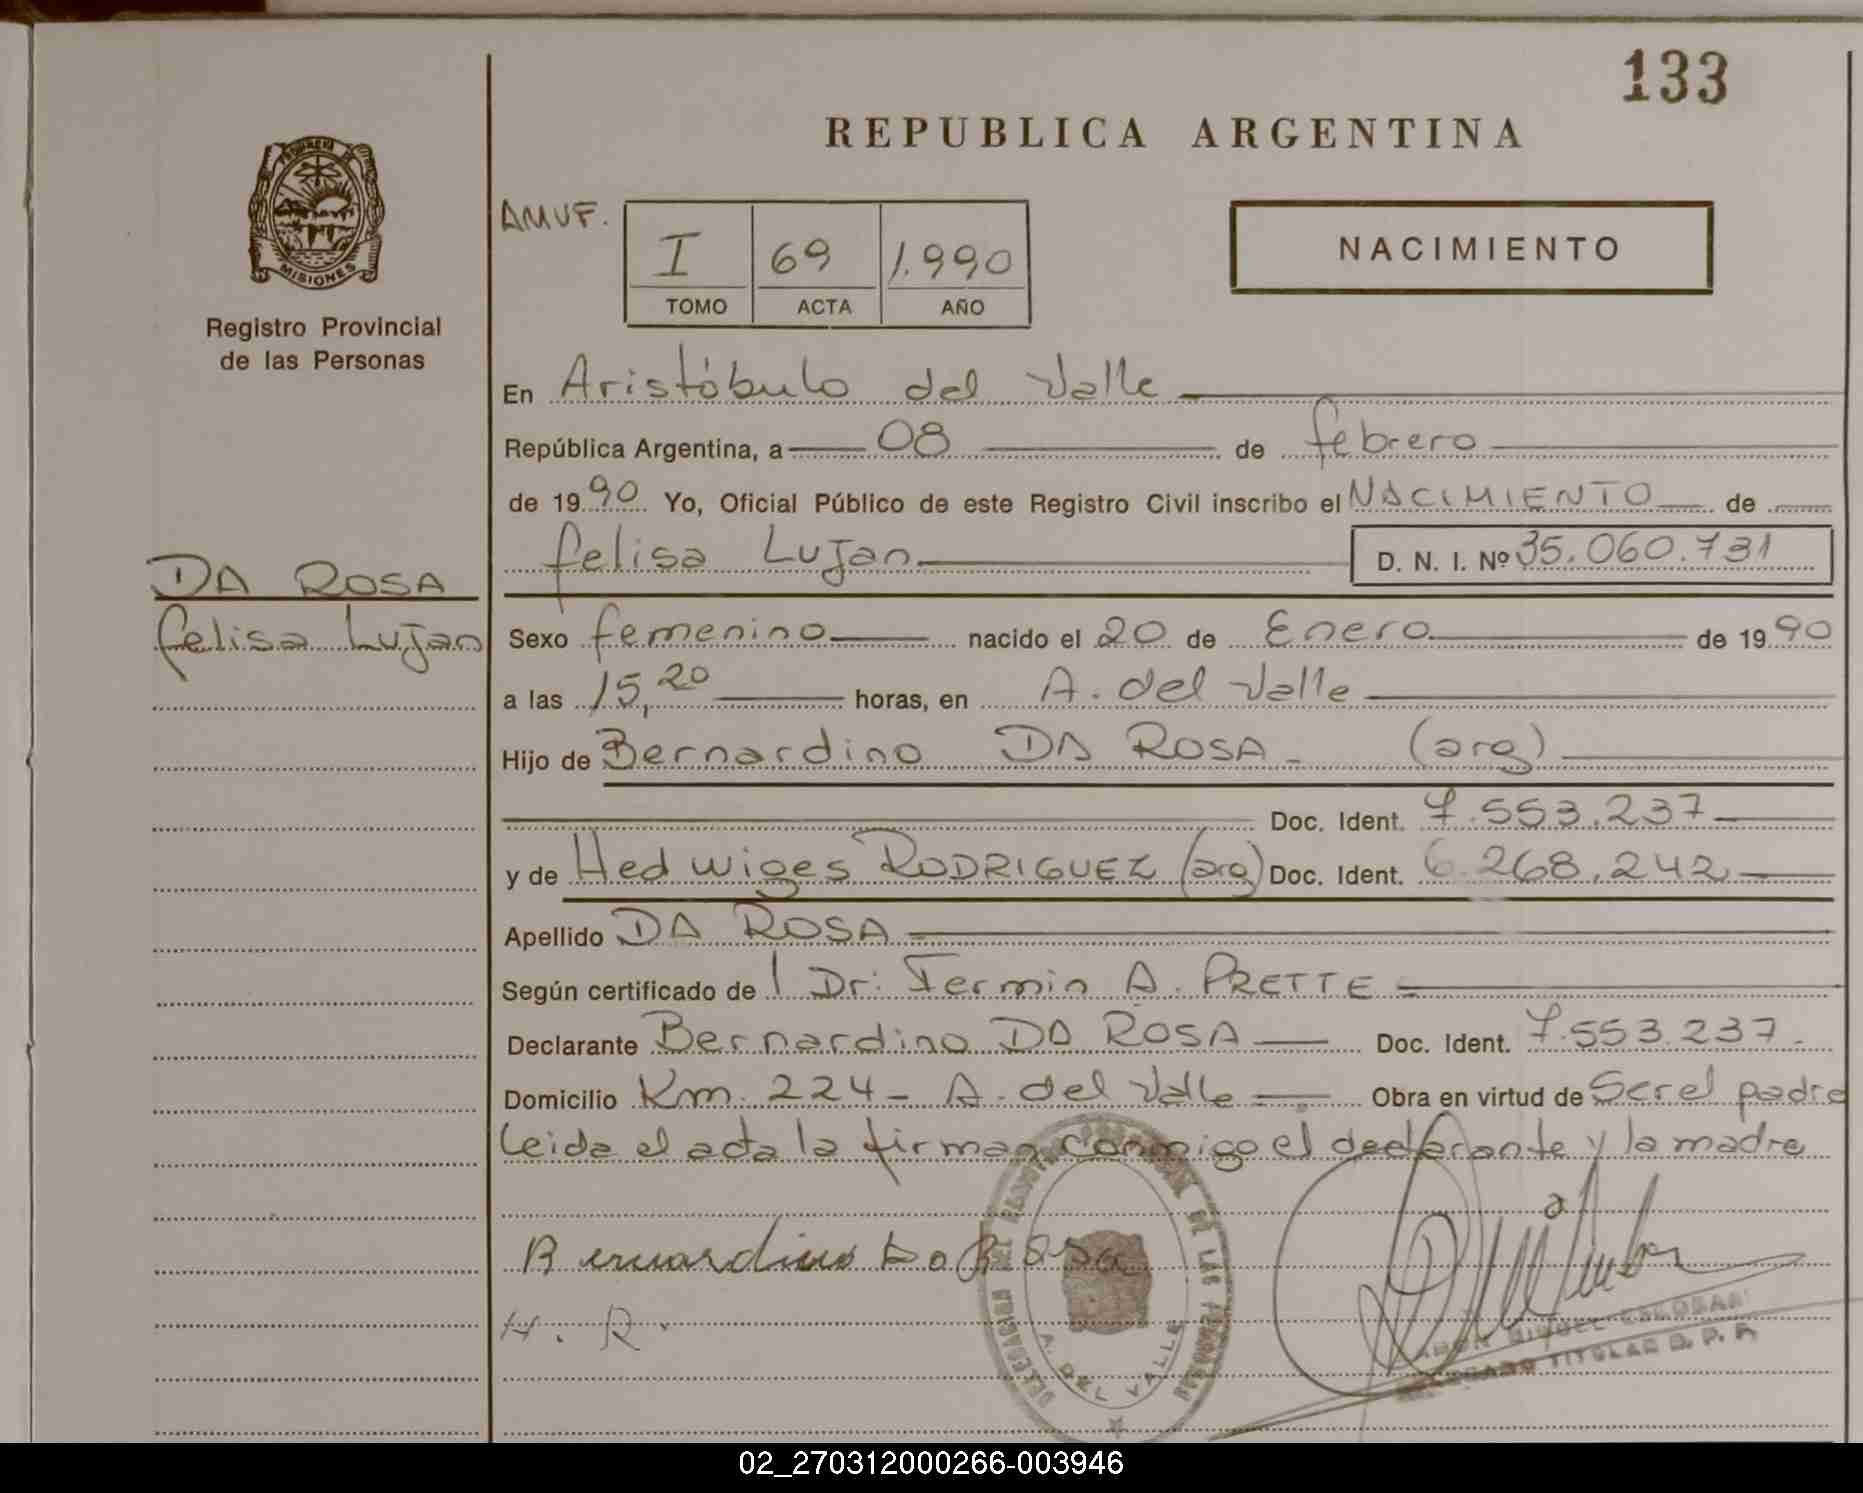 133
REPUBLICA ARGENTINA
PROVINCIA DE
MISIONES
Registro Provincial
de las Personas
AMVF.
I 69 1.990
TOMO ACTA AÑO
NACIMIENTO
En Aristóbulo del Valle
República Argentina, a 08 de febrero
de 1990 Yo, Oficial Público de este Registro Civil inscribo el NACIMIENTO de
felisa Lujan D. N. I. Nº 35.060.731
DA ROSA
felisa Lujan
Sexo femenino nacido el 20 de Enero de 1990
a las 15,20 horas, en A. del Valle
Hijo de Bernardino DA ROSA - (arg)
Doc. Ident. 7.553.237
y de Hedwiges RODRIGUEZ (arg) Doc. Ident. 6.268.242
Apellido DA ROSA
Según certificado de l Dr. Fermin A. PRETTE
Declarante Bernardino DA ROSA Doc. Ident. 7.553.237.
Domicilio Km. 224 - A. del Valle Obra en virtud de Ser el padre
leida el acta la firman conmigo el declarante y la madre
Bernardino Da Rosa
H. R.
DELEGACION DEL REGISTRO PROVINCIAL DE LAS PERSONAS
A. DEL VALLE
MIGUEL ESCOBAR
TITULAR R. P. P.
02_270312000266-003946